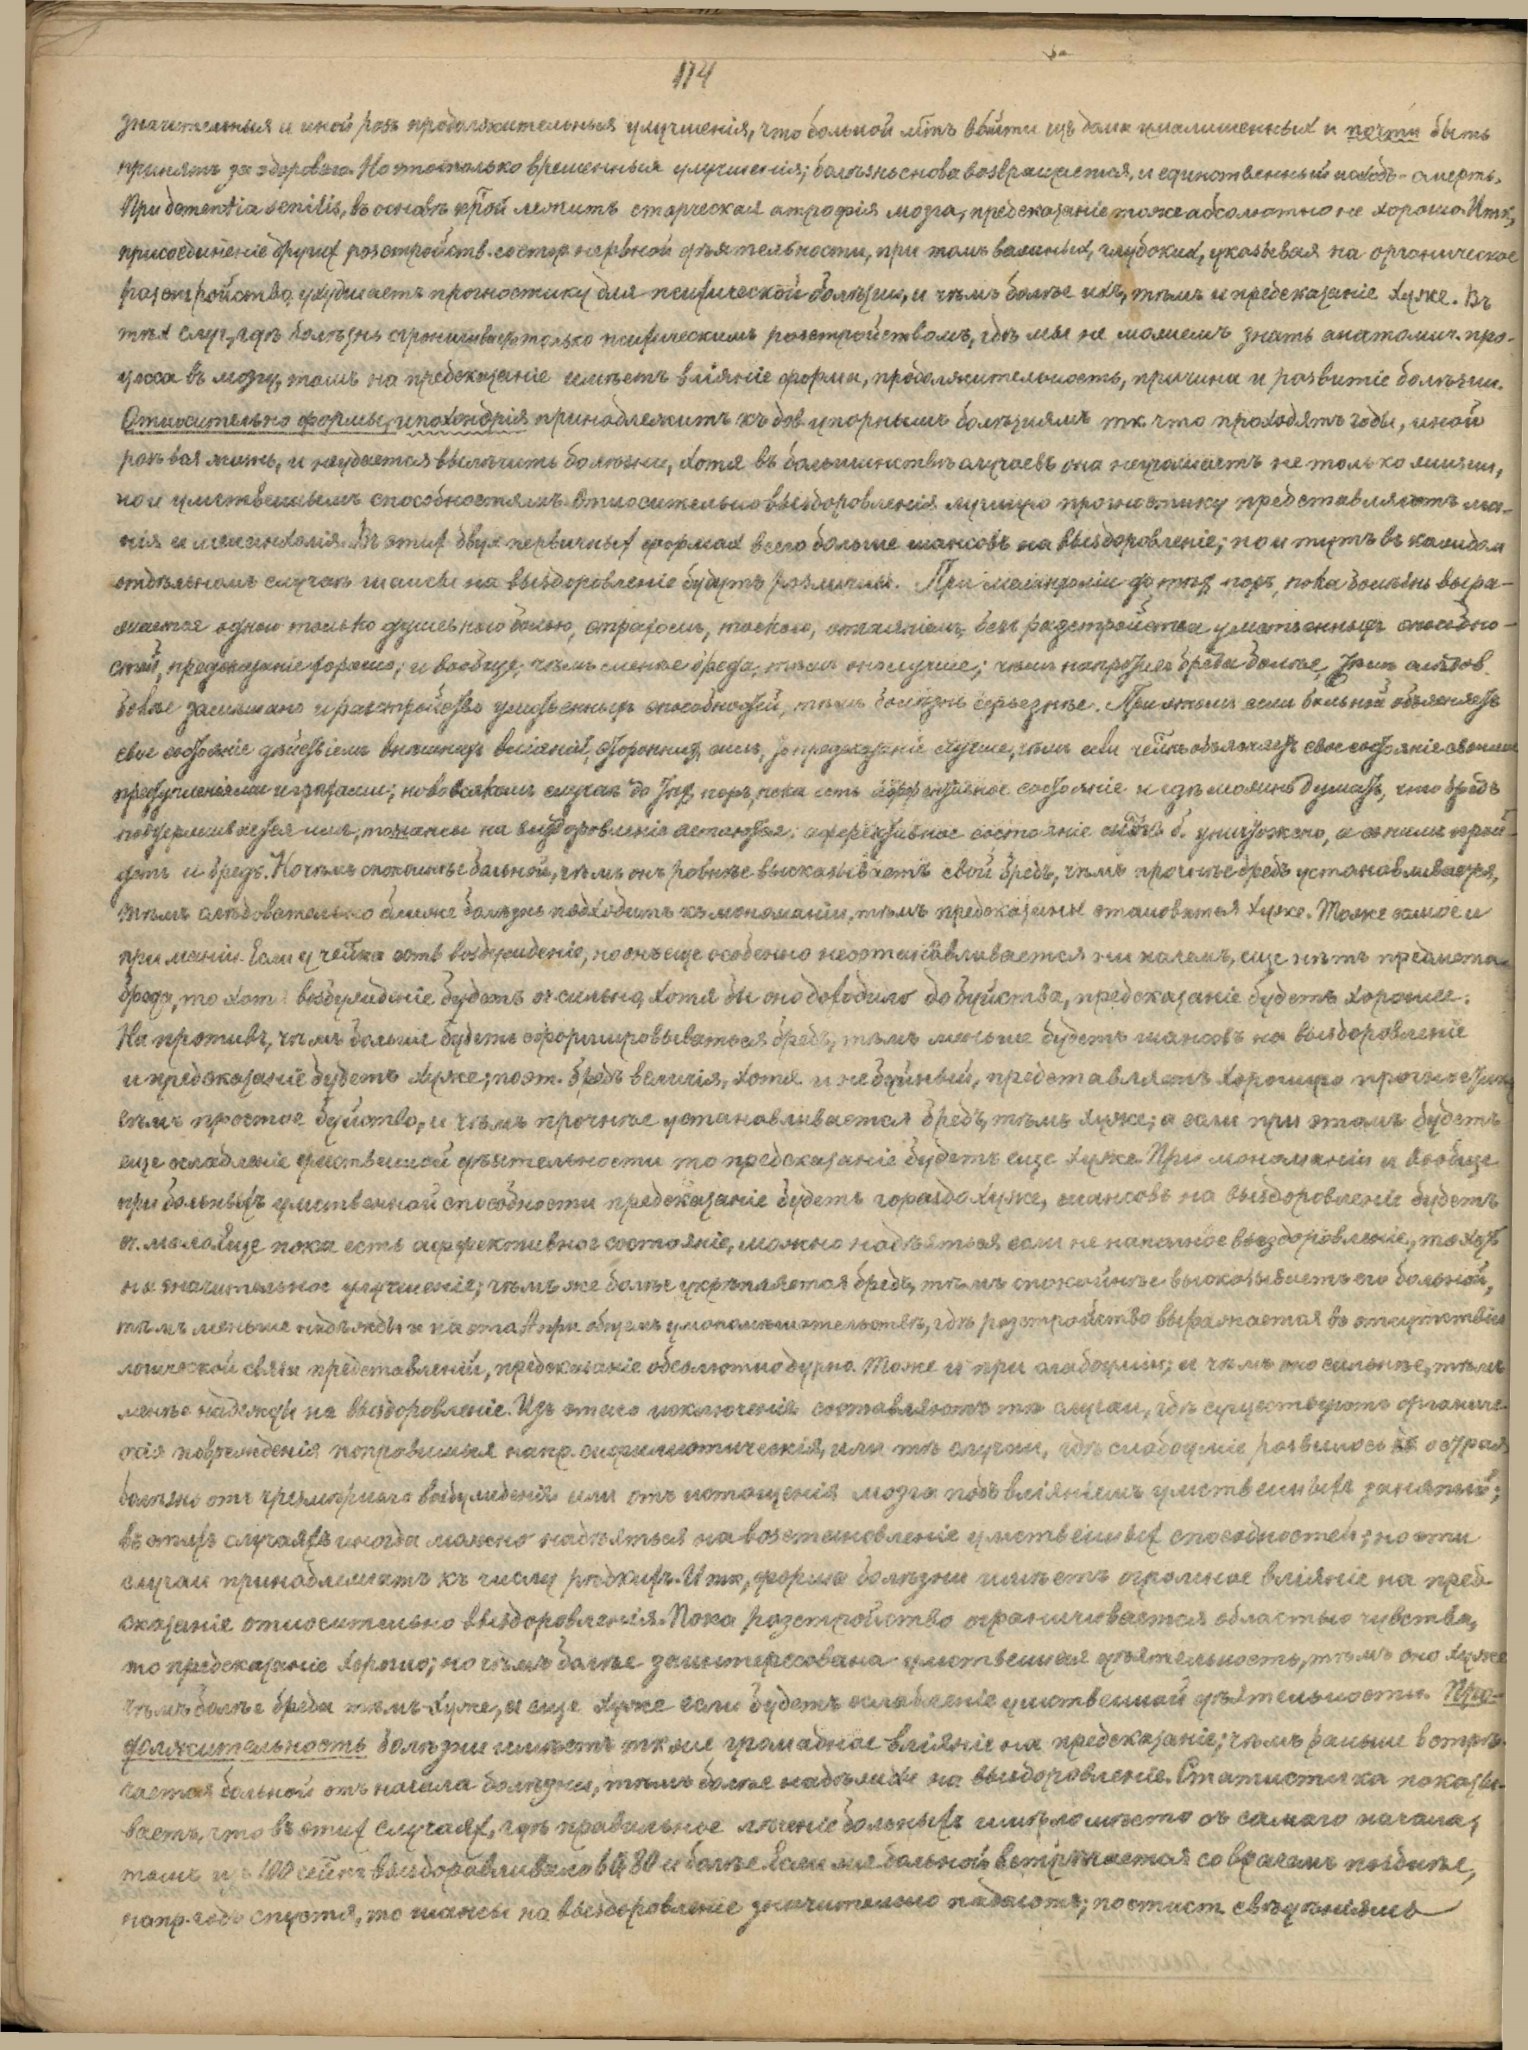 174
значительныя и иной разъ продолжительныя улучшенія, что больной м̃тъ выйти изъ дома умалишенныхъ и почти быть
принятъ за здороваго. Но это только временныя улучшенія; болѣзнь снова возвращается, и единственный исходъ - смерть.
При dementia senilis, въ основѣ к̃рой лежитъ старческая атрофія мозга, предсказаніе тоже абсолютно не хорошо. Итк,
присоединеніе другихъ разстройствъ нервной дѣятельности, при томъ важныхъ, глубокихъ, указывая на органическое
разстройство, ухудшаетъ прогностику для психической болѣзни, и чѣмъ болѣе ихъ, тѣмъ и предсказаніе хуже. Въ
тѣхъ случ., гдѣ болѣзнь ограничивается только психическимъ разстройствомъ, гдѣ мы не можемъ знать анатомич. про-
цесса въ мозгу, тамъ на предсказаніе имѣетъ вліяніе форма, продолжительность, причина и развитіе болѣзни.
Относительно формы, ипохондрія принадлежитъ къ дов. упорнымъ болѣзнямъ тк. что проходятъ годы, иной
разъ вся жизнь, и не удается вылѣчить болѣзни, хотя въ большинствѣ случаевъ она не угрожаетъ не только жизни,
но и умственнымъ способностямъ. Относительно выздоровленія лучшую прогностику представляютъ ма-
нія и меланхолія. Въ этихъ двухъ первичныхъ формахъ всего больше шансовъ на выздоровленіе; но и тутъ въ каждом
отдѣльномъ случаѣ шансы на выздоровленіе будутъ различны. При меланхоліи до тѣхъ поръ, пока болѣзнь выра-
жается одною только душевною болью, страхомъ, тоскою, отчаяніемъ, безъ разстройства умственныхъ способно-
стей, предсказаніе хорошо; и вообще, чѣмъ менѣе бреда, тѣмъ оно лучше; чѣмъ напротивъ бреда болѣе, чѣмъ слѣдов.
болѣе замѣшано и разстройство умственныхъ способностей, тѣмъ болѣзнь серьезнѣе. При этомъ если больной объясняетъ
свое состояніе дѣйствіемъ внѣшнихъ вліяній, стороннихъ силъ, то предсказаніе лучше, чѣмъ если чел̃къ объясняетъ свое состояніе своими
преступленіями и грѣхами; но во всякомъ случаѣ до тѣхъ поръ, пока есть аффективное состояніе и гдѣ можно думать, что бредъ
поддерживается имъ, то шансы на выздоровленіе остаются: аффективное состояніе м̃тъ б. уничтожено, а съ нимъ прой-
детъ и бредъ. Но чѣмъ спокойнѣе больной, чѣмъ онъ ровнѣе высказываетъ свой бредъ, чѣмъ прочнѣе бредъ устанавливается,
тѣмъ слѣдовательно ближе болѣзнь подходитъ къ мономаніи, тѣмъ предсказаніе становится хуже. Тоже самое и
при маніи. Если у чел̃ка есть возбужденіе, но онъ еще особенно не останавливается ни на чемъ, еще нѣтъ предмета
бреда, то хотя возбужденіе будетъ и сильно, хотя бы оно доводило до буйства, предсказаніе будетъ хорошее.
На противъ, чѣмъ больше будетъ сформировываться бредъ, тѣмъ меньше будетъ шансовъ на выздоровленіе
и предсказаніе будетъ хуже; поэт. бредъ величія, хотя и не буйный, представляетъ худшую прогностику
чѣмъ простое буйство, и чѣмъ прочнѣе устанавливается бредъ, тѣмъ хуже; а если при этомъ будетъ
еще ослабленіе умственной дѣятельности то предсказаніе будетъ еще хуже. При мономаніи и вообще
при больныхъ умственной способности предсказаніе будетъ гораздо хуже, шансовъ на выздоровленіе будетъ
о. мало. Еще пока есть аффективное состояніе, можно надѣяться если не на полное выздоровленіе, то хоть
на значительное улучшеніе; чѣмъ же болѣе укрѣпляется бредъ, тѣмъ спокойнѣе высказываетъ его больной,
тѣмъ меньше надежды и на это. А при общемъ умопомѣшательствѣ, гдѣ разстройство выражается въ отсутствіи
логической связи представленій, предсказаніе абсолютно дурно. Тоже и при слабоуміи; и чѣмъ оно сильнѣе, тѣмъ
менѣе надежды на выздоровленіе. Изъ этого исключенія составляютъ тѣ случаи, гдѣ существуютъ органиче-
скія поврежденія поправимыя напр. сифилитическія, или тѣ случаи, гдѣ слабоуміе развилось острая
болѣзнь отъ чрезмѣрнаго возбужденія или отъ истощенія мозга подъ вліяніемъ умственныхъ занятій;
въ этихъ случаяхъ иногда можно надѣяться на возстановленіе умственныхъ способностей; но эти
случаи принадлежатъ къ числу рѣдкихъ. Итк, форма болѣзни имѣетъ огромное вліяніе на пред-
сказаніе относительно выздоровленія. Пока разстройство ограничивается областью чувства,
то предсказаніе хорошо; но чѣмъ болѣе заинтересована умственная дѣятельность, тѣмъ оно хуже
чѣмъ болѣе бреда тѣмъ хуже, и еще хуже если будетъ ослабленіе умственной дѣятельности. Про-
должительность болѣзни имѣетъ ткже громадное вліяніе на предсказаніе; чѣмъ раньше встрѣ-
чается больной отъ начала болѣзни, тѣмъ болѣе надежды на выздоровленіе. Статистика показы-
ваетъ, что въ этихъ случаяхъ, гдѣ правильное лѣченіе больныхъ имѣло мѣсто съ самаго начала,
тамъ изъ 100 чел̃къ выздоравливало 60, 80 и болѣе. Если же больной встрѣчается со врачемъ позднѣе,
напр. годъ спустя, то шансы на выздоровленіе значительно падаютъ; по стат. свѣдѣніямъ